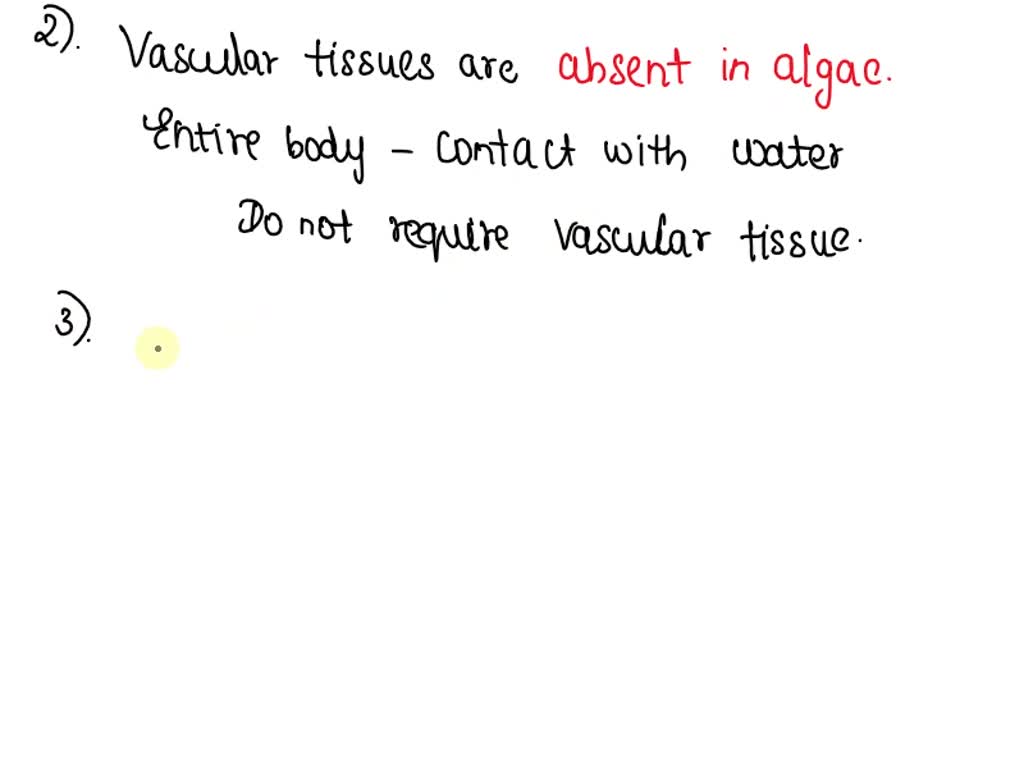 2). Vascular tissues are absent in algae.
Entire body - contact with water
Do not require vascular tissue.
3).